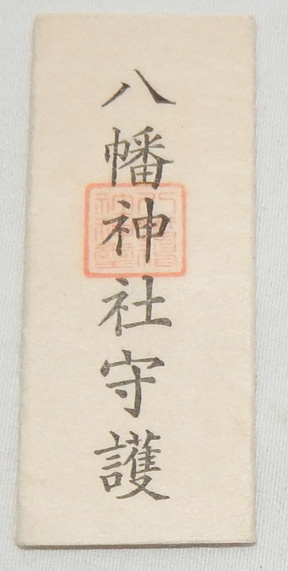 八幡神社守護